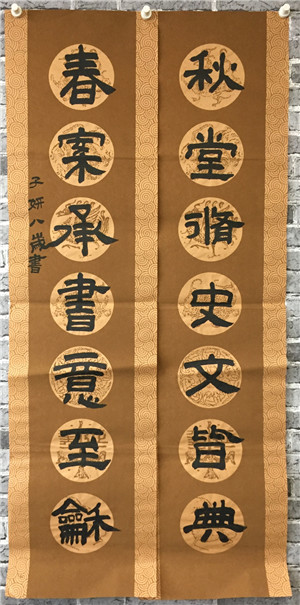 秋堂脩史文皆典
春案承書意至龢
子妍八歲書